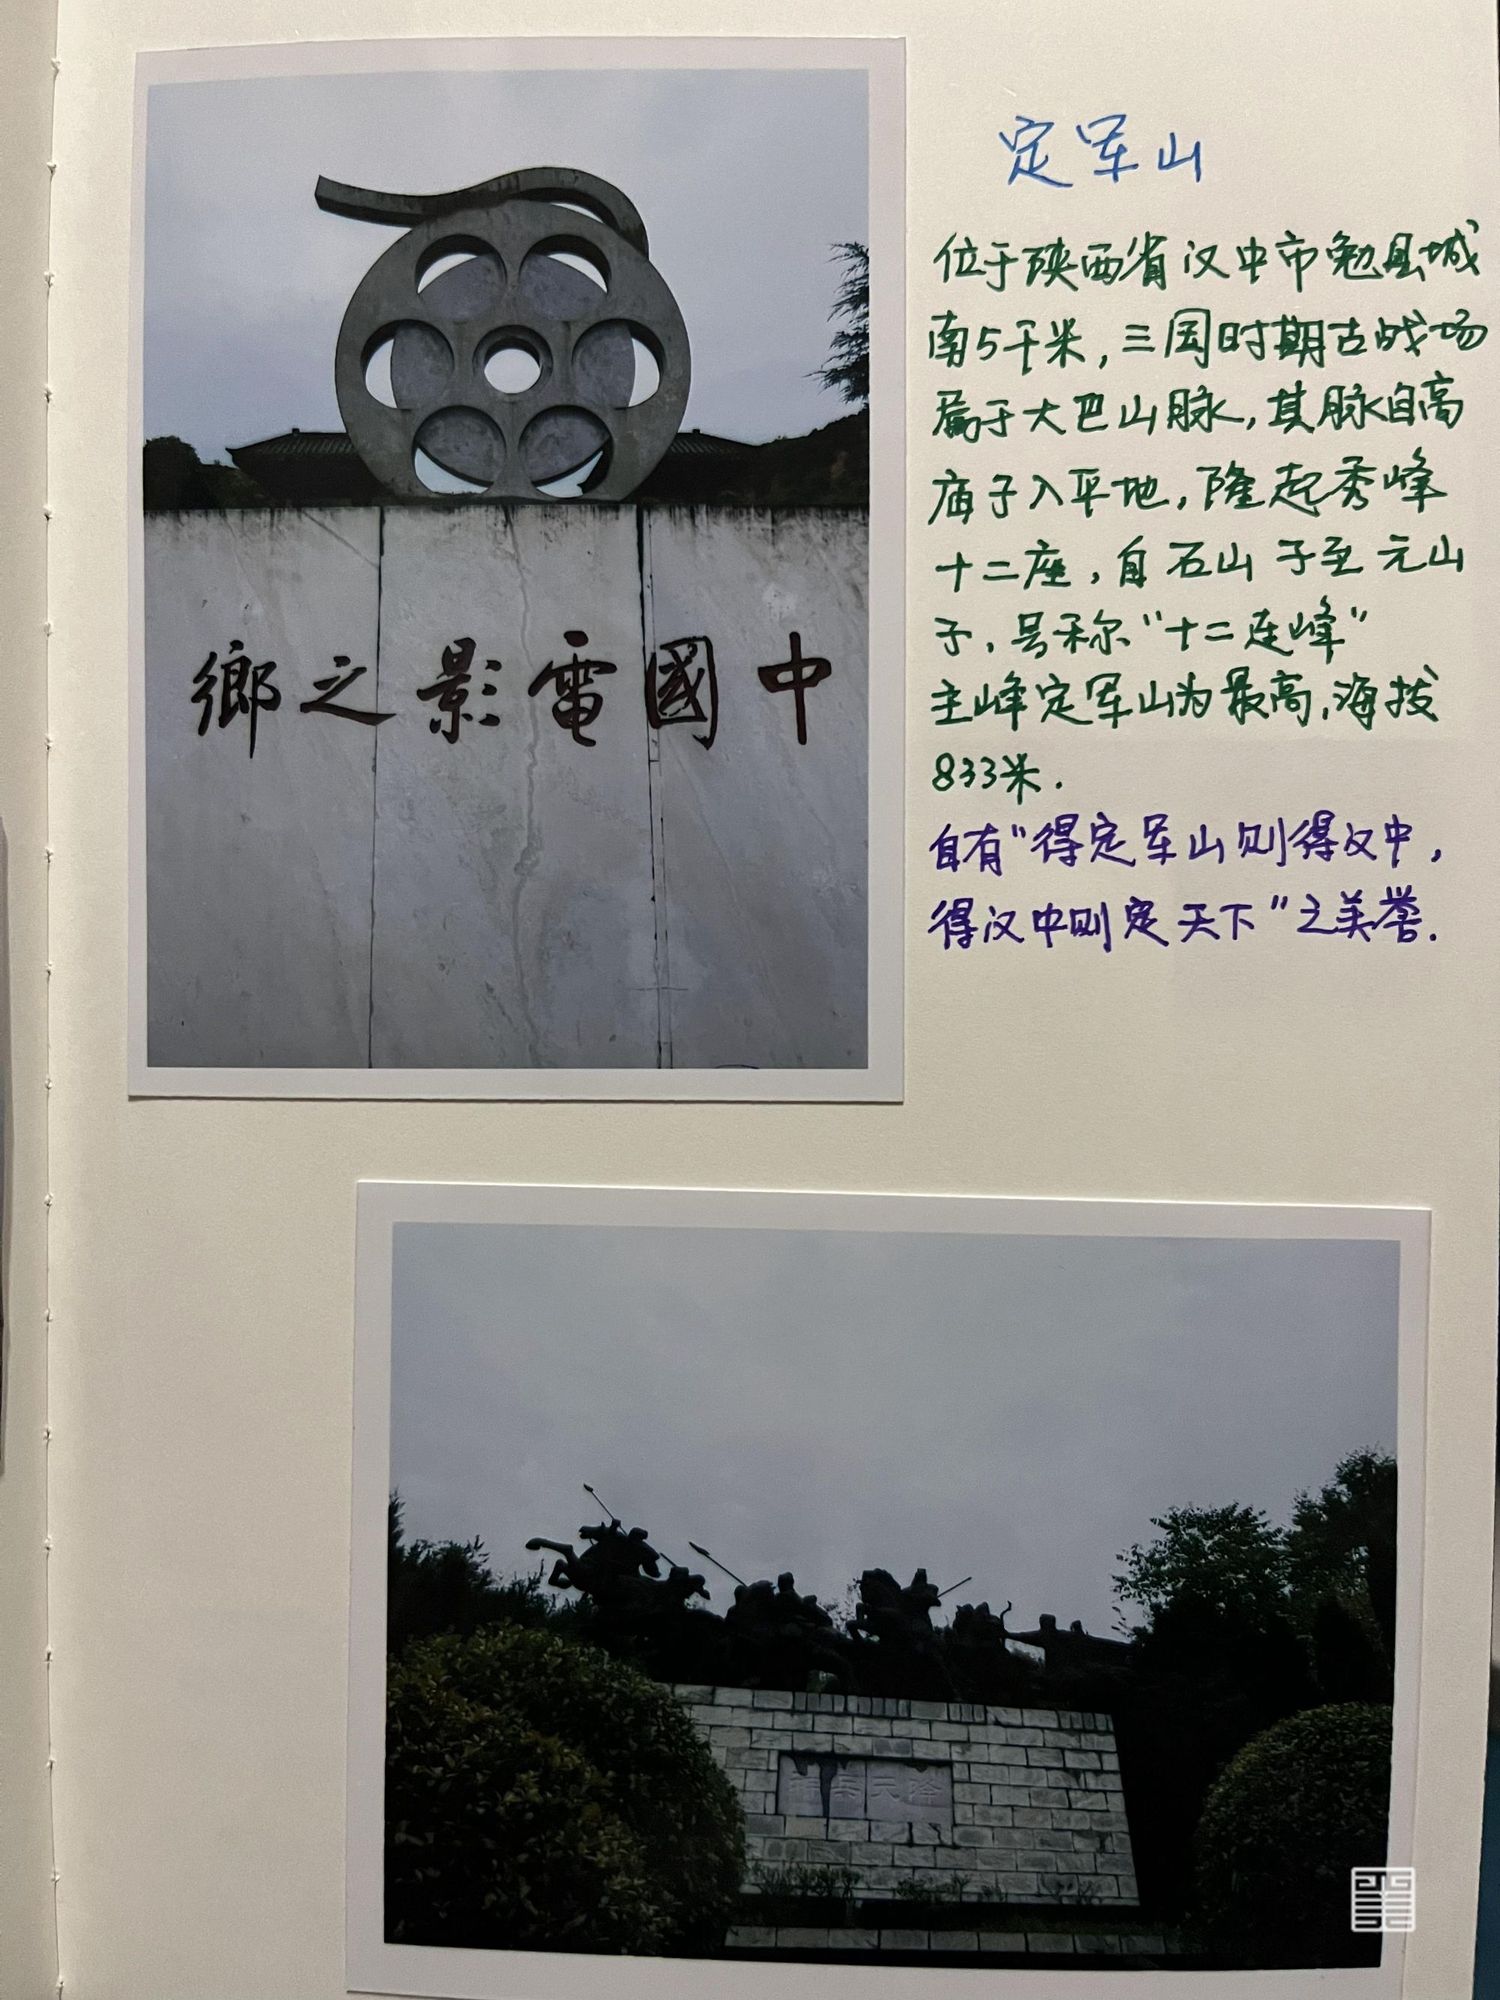 定军山
位于陕西省汉中市勉县城
南5千米，三国时期古战场
属于大巴山脉，其脉自高
庙子入平地，隆起秀峰
十二座，自石山子至元山
子，号称“十二连峰”
主峰定军山为最高，海拔
833米.
自有“得定军山则得汉中，
得汉中则定天下”之美誉.
中國電影之鄉